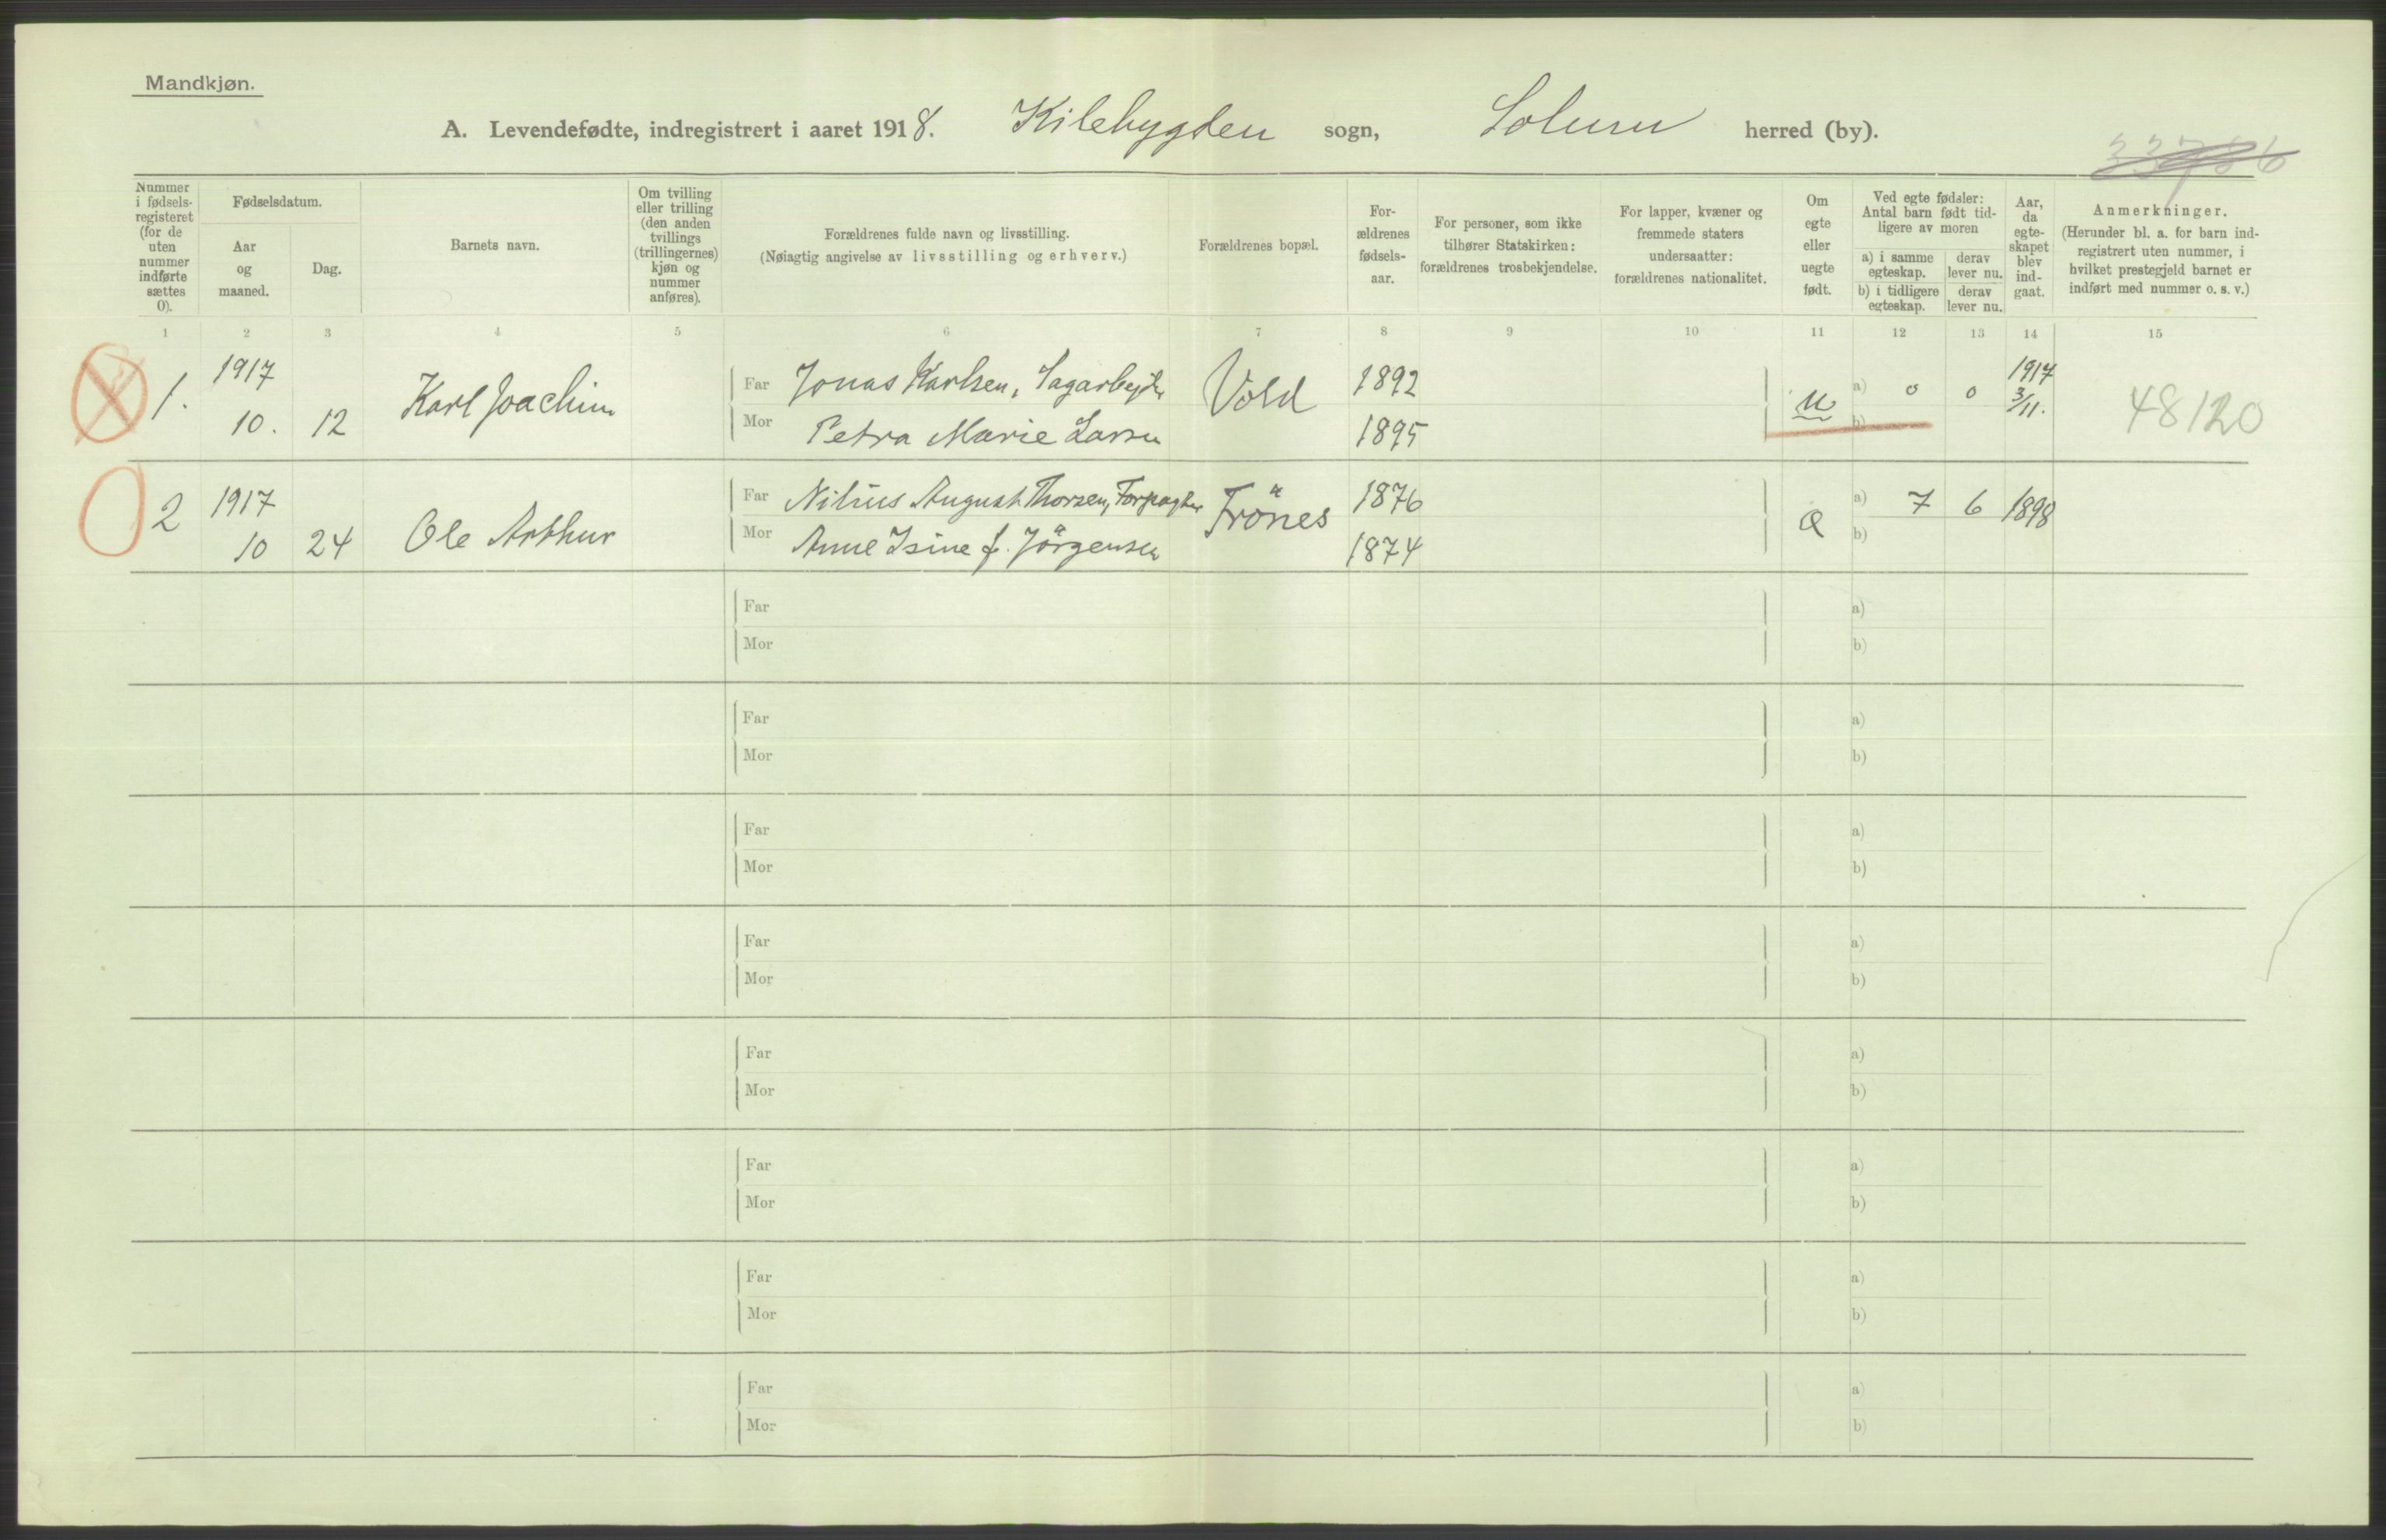 Mandkjøn.
A. Levendefødte, indregistrert i aaret 1918. Kilebygden sogn, Solum herred (by).
33786
Nummer i fødsels-registeret (for de uten nummer indførte sættes 0).
Fødselsdatum.
Aar og maaned.
Dag.
Barnets navn.
Om tvilling eller trilling (den anden tvillings (trillingernes) kjøn og nummer anføres).
Forældrenes fulde navn og livsstilling.
(Nøiagtig angivelse av livsstilling og erhverv.)
Forældrenes bopæl.
For-ældrenes fødsels-aar.
For personer, som ikke tilhører Statskirken: forældrenes trosbekjendelse.
For lapper, kvæner og fremmede staters undersaatter: forældrenes nationalitet.
Om egte eller uegte født.
Ved egte fødsler: Antal barn født tid-ligere av moren
a) i samme egteskap.
derav lever nu.
b) i tidligere egteskap.
derav lever nu.
Aar, da egte-skapet blev ind-gaat.
Anmerkninger.
(Herunder bl. a. for barn ind-registrert uten nummer, i hvilket prestegjeld barnet er indført med nummer o. s. v.)
1 2 3 4 5 6 7 8 9 10 11 12 13 14 15
1. 1917 10. 12 Karl Joachim Far Jonas Karlsen, Sagarbejder Vold 1892 u a) 0 0 1917 3/11. 48120
Mor Petra Marie Larsen 1895 b)
2 1917 10 24 Ole Arthur Far Nilius August Thorsen, Forpagter Trönes 1876 e a) 7 6 1898
Mor Anne Isine f. Jörgensen 1874 b)
Far a)
Mor b)
Far a)
Mor b)
Far a)
Mor b)
Far a)
Mor b)
Far a)
Mor b)
Far a)
Mor b)
Far a)
Mor b)
Far a)
Mor b)